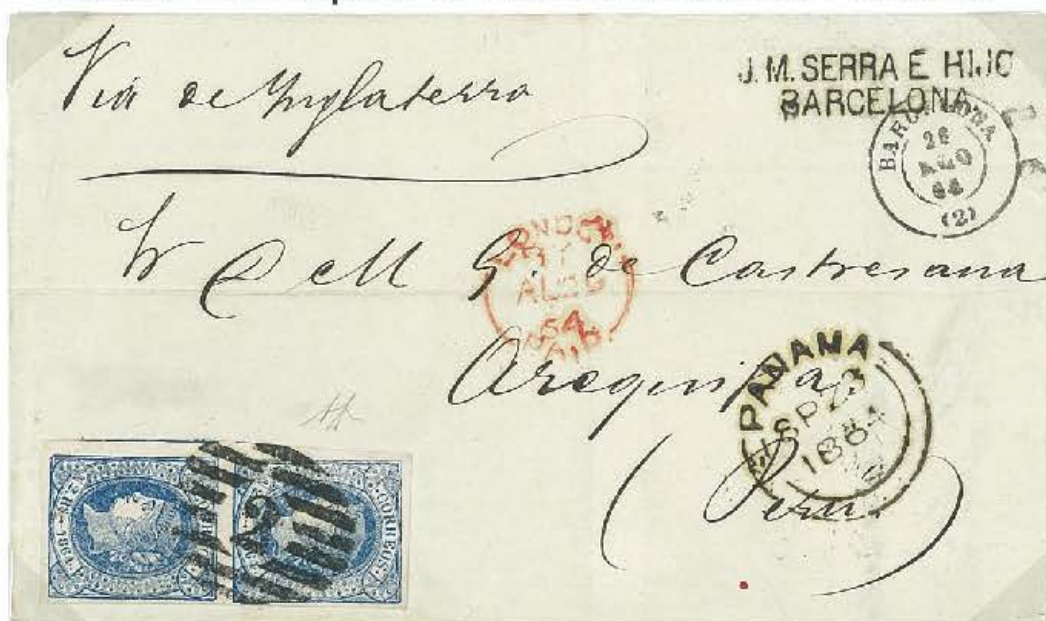 Via de Inglaterra
J. M. SERRA É HIJO
BARCELONA
BARCELONA
26
AGO
64
(2)
LONDON
AU29
64
PAID
de Castresana
Arequipa
(Peru)
PANAMA
SP 23
1864
2
CORREOS